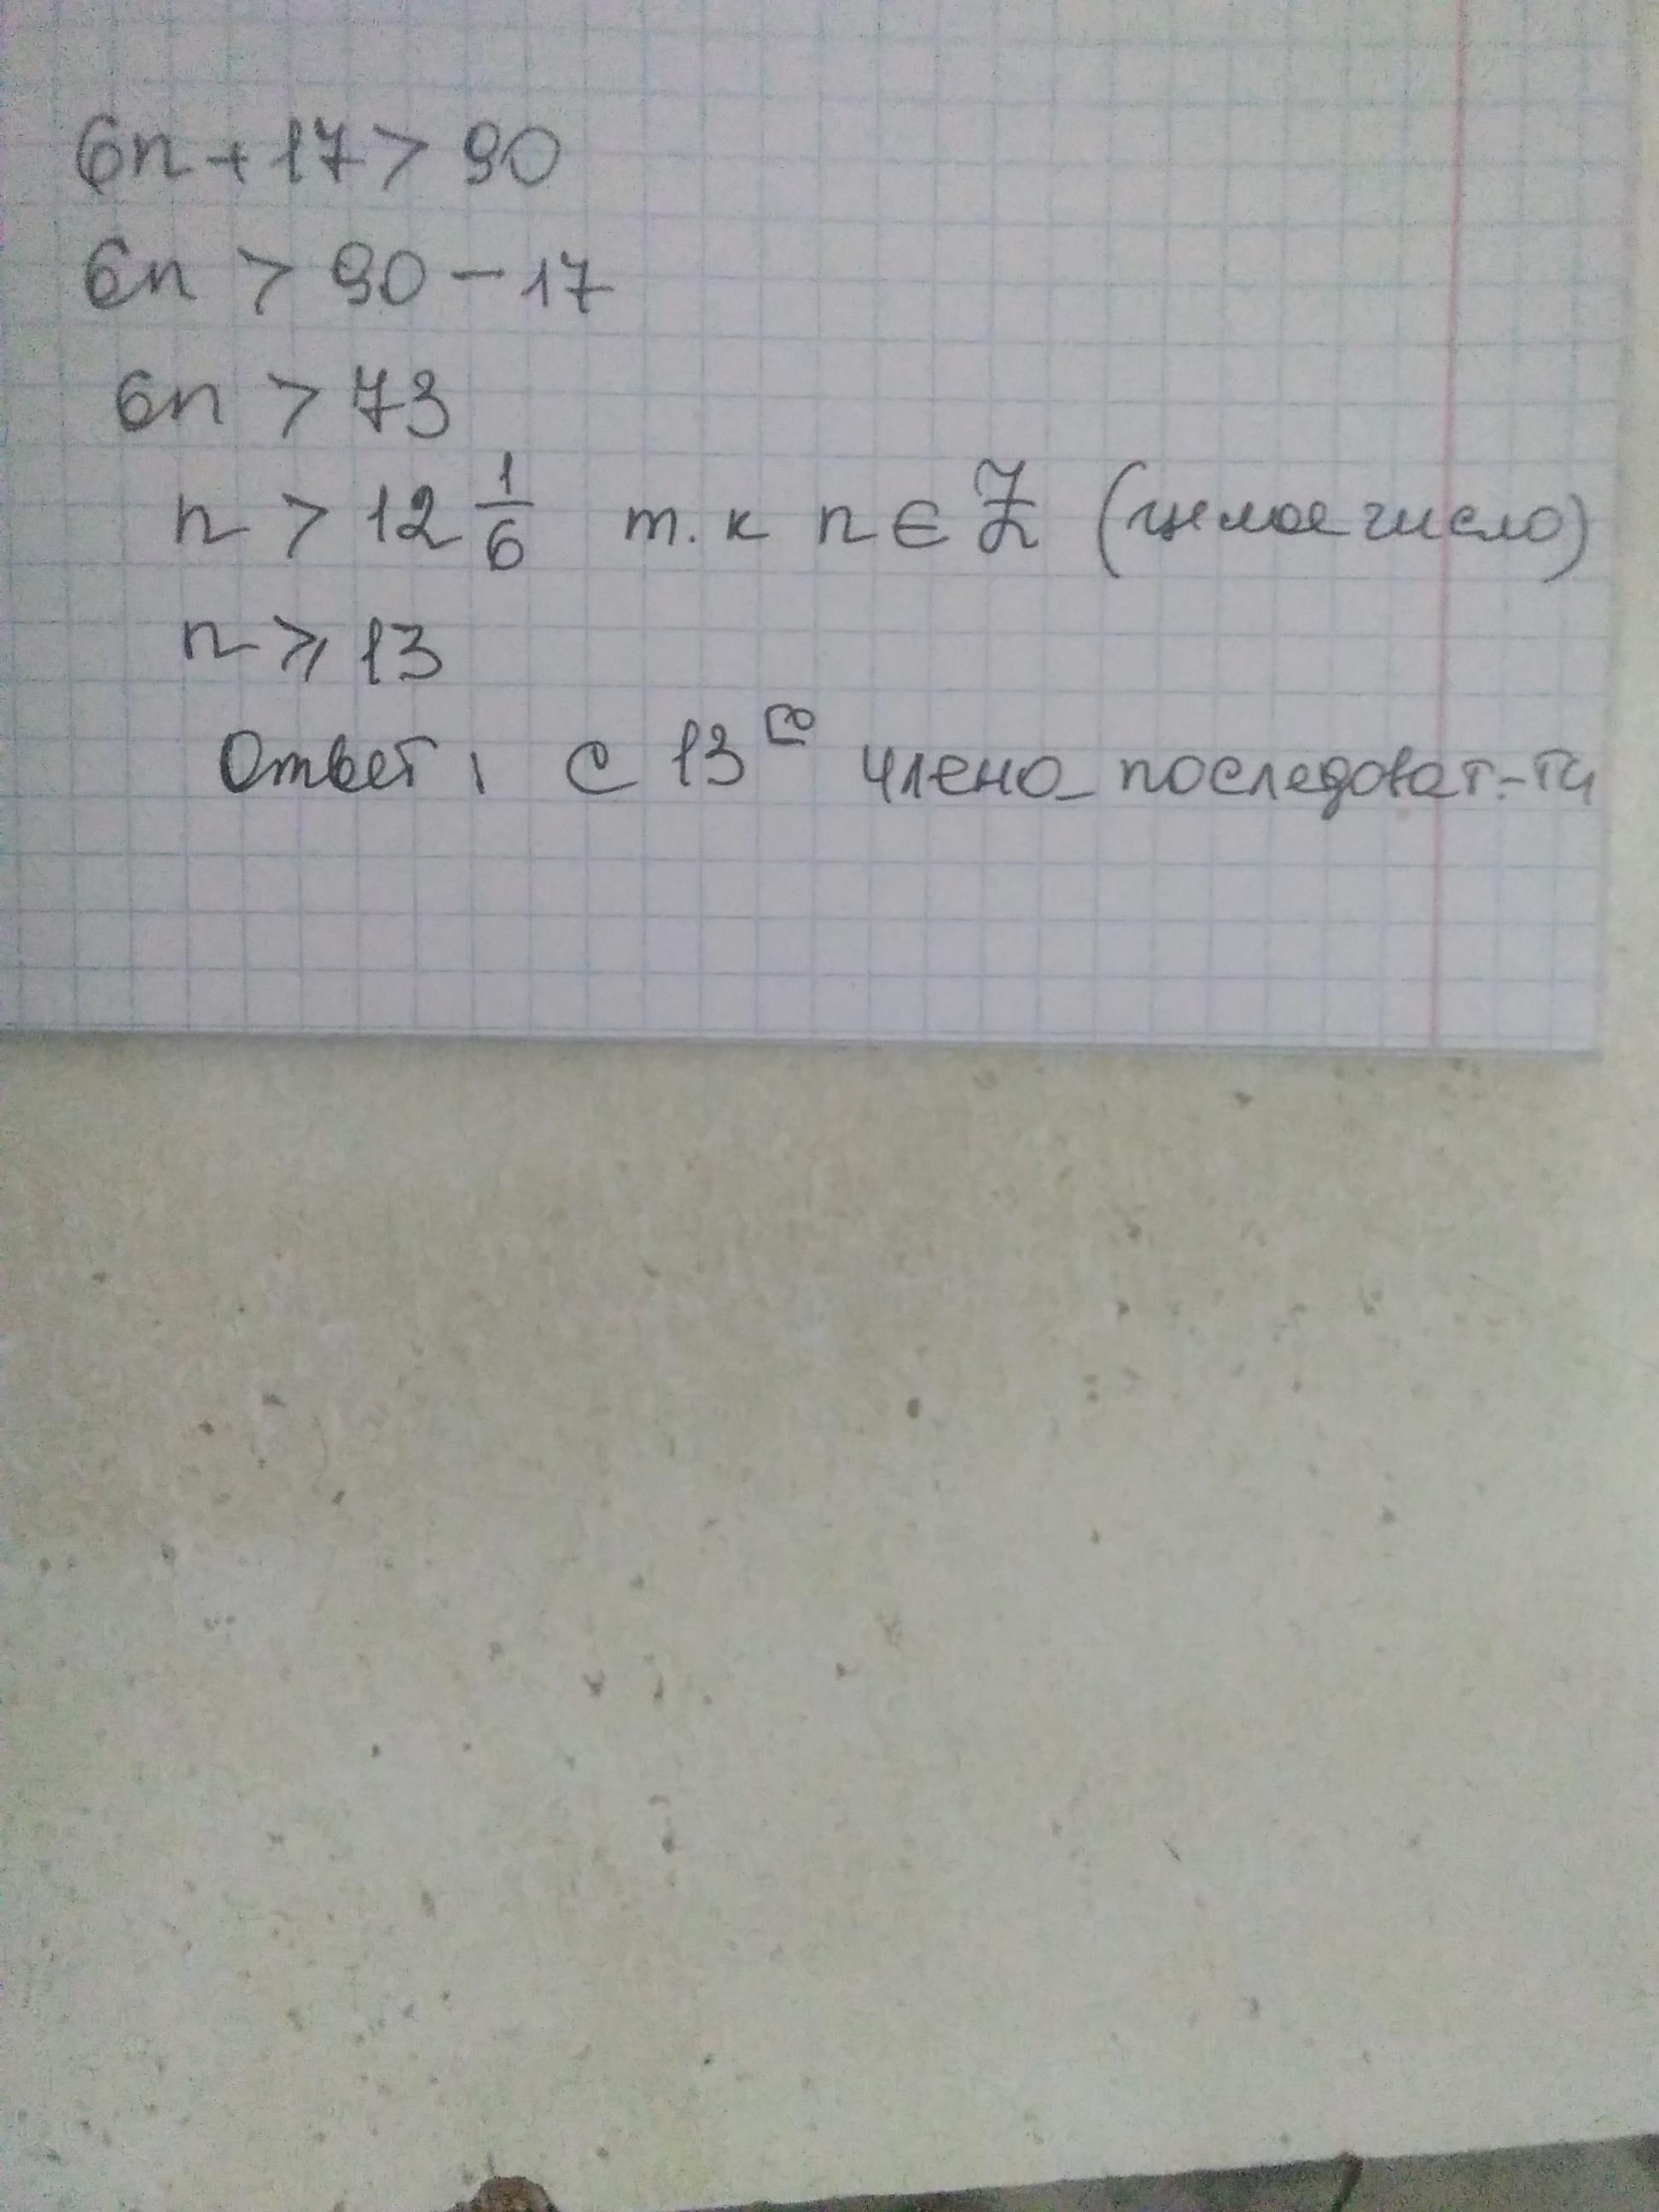 6n + 17 > 90
6n > 90 - 17
6n > 73
n > 12 1/6 т. к n ∈ Z (целое число)
n ⩾ 13
Ответ: с 13го члена последоват.-ти